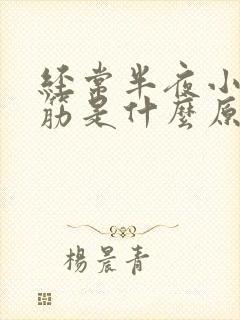 经常半夜小
筋是什麼原
楊晨青